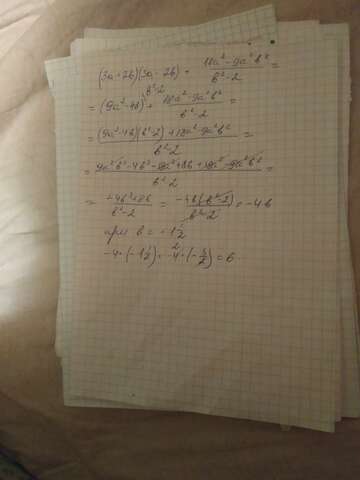 (3a-2b)(3a-2b) + 18a²-9a²b² / b²-2 =
= (9a²-4b) + 18a²-9a²b² / b²-2 =
= (9a²-4b)(b²-2)+18a²-9a²b² / b²-2 =
= 9a²b²-4b³-18a²+8b+18a²-9a²b² / b²-2 =
= -4b³+8b / b²-2 = -4b(b²-2) / b²-2 = -4b
при b = -1 1/2
-4·(-1 1/2) = -4·(-3/2) = 6